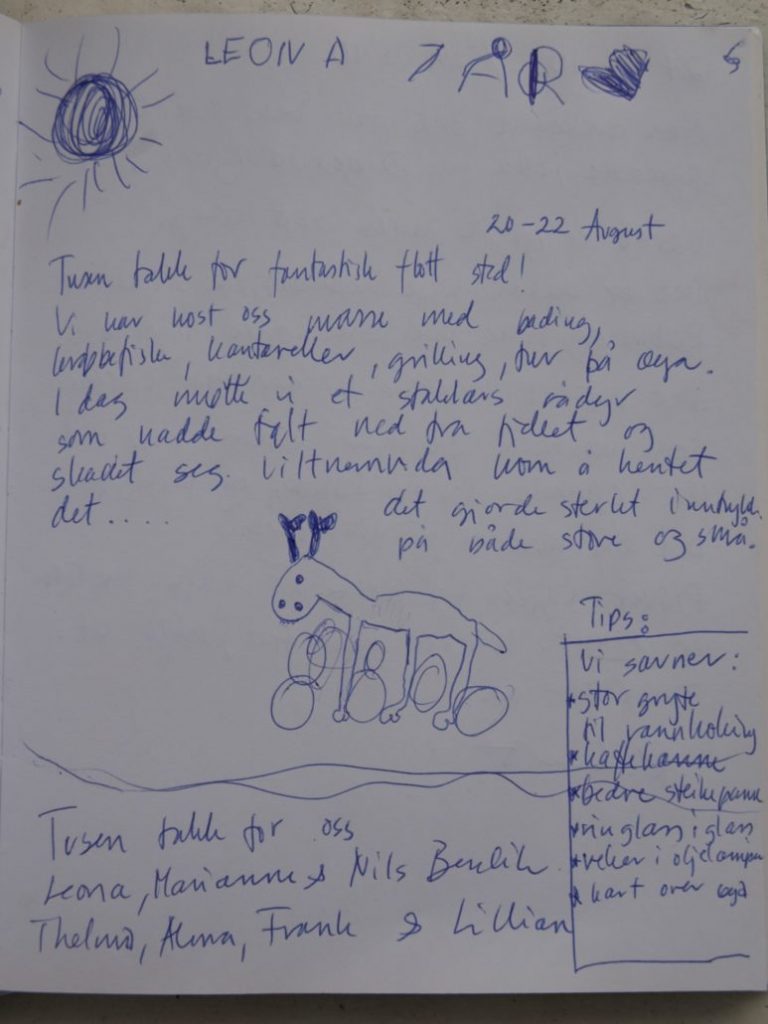 LEONA 7 ÅR
20-22 August
Tusen takk for fantastisk flott sted!
Vi har kost oss masse med bading,
krabbefiske, kantareller, grilling, tur på øya.
I dag møtte vi et stakkars rådyr
som hadde falt ned fra fjellet og
skadet seg. Viltnemnda kom å hentet
det.... det gjorde sterkt inntrykk
på både store og små.
Tips:
Vi savner:
* stor gryte
til vannkoking
* kaffekanne
* bedre steikepanne
* vinglass i glass
* veker i oljelampe
* kart over øya
Tusen takk for oss
Leona, Marianne & Nils Bendik
Alma, Frank & Lillian